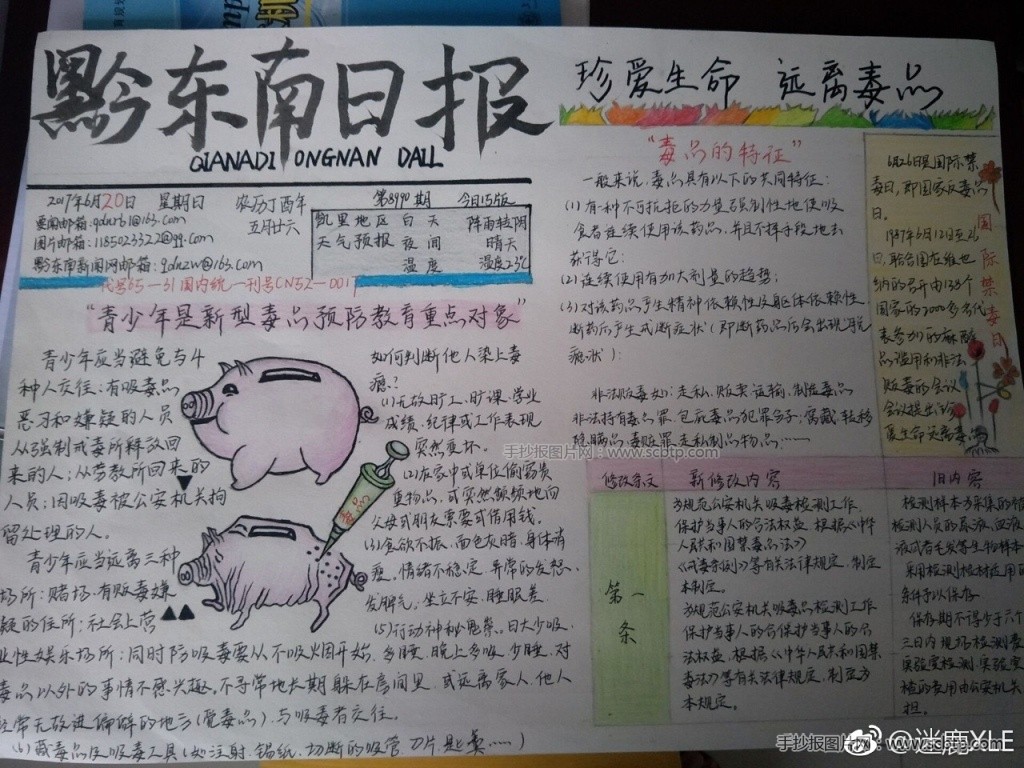 黔东南日报
QIANADI ONGNAN DAIL
2017年6月20日 星期日 农历丁酉年
五月廿六
要闻邮箱:qdnrb1@163.com
图片邮箱:1185023322@qq.com
黔东南新闻网邮箱:qdnzw@163.com
代号65-31国内统一刊号CN52-0017
第8990期 今日15版
凯里地区 白天 阵雨转阴
天气预报 夜间 晴天
温度 温度23℃
"青少年是新型毒品预防教育重点对象"
青少年应当避免与4
种人交往:有吸毒品
恶习和嫌疑的人员
从强制戒毒所释放回
来的人;从劳教所回来的
人员;因吸毒被公安机关拘
留处理的人。
青少年应当远离三种
场所:赌场,有贩毒嫌
疑的住所;社会上营
业性娱乐场所;同时防吸毒要从不吸烟开始,
毒品
如何判断他人染上毒
瘾?
(1)无故旷工、旷课、学业
成绩、纪律或工作表现
突然变坏。
(2)在家中或单位偷窃贵
重物品,或突然频频地向
父母或朋友索要或借用钱。
(3)食欲不振,面色灰暗,身体消
瘦,情绪不稳定,异常的发怒、
发脾气,坐立不安,睡眠差
(5)行动神秘鬼祟。日大少吸、
多睡,晚上多吸,少睡,对
毒品以外的事情不感兴趣,不寻常地长期躲在房间里,或远离家人、他人
经常无故进出偏僻的地方(覓毒品),与吸毒者交往。
(6)藏毒品及吸毒工具(如注射,锡纸,切断的吸管,刀片,匙羹……)
珍爱生命 远离毒品
"毒品的特征"
一般来说,毒品具有以下的共同特征:
(1)有一种不可抗拒的力量强制性地使吸
食者连续使用该药品,并且不择手段地去
获得它;
(2)连续使用有加大剂量的趋势;
(3)对该药品产生精神依赖性及躯体依赖性,
断药后产生戒断症状(即断药品后会出现脱
瘾状):
非法贩毒如:走私、贩卖、运输、制造毒品
非法持有毒品罪,包庇毒品犯罪分子,窝藏、转移、
隐瞒毒品、毒赃罪,走私制品物品……
6月26日是国际禁
毒日,即国家反毒品
日。
1987年6月12日至26
日,联合国在维也
纳的召开由138个
国家的3000多名代
表参加的麻醉
品滥用和非法
贩毒的会议
会议提出"珍
爱生命,远离毒品
国际禁毒日
修改条文 新修改内容 旧内容
第一条
为规范公安机关吸毒检测工作,
保护当事人的合法权益,根据《中华
人民共和国禁毒法》
《戒毒条例》等有关法律规定,制定
本制定。
为规范公安机关吸毒品检测工作
保护当事人的合保护当事人的合
法权益,根据《中华人民共和国禁
毒法》等有关法律规定,制定为
本规定。
检测样本为采集的被
检测人员的尿液、血液
液或者毛发等生物样本
采用检测检材应用的
条件予以保存
保存期不得少于六个
三日内现场检测
实验室检测,实验室
检的费用由公安机关
担。
手抄报图片网 www.scbtp.com
手抄报图片网 www.scbtp.com
@迷鹿XLE